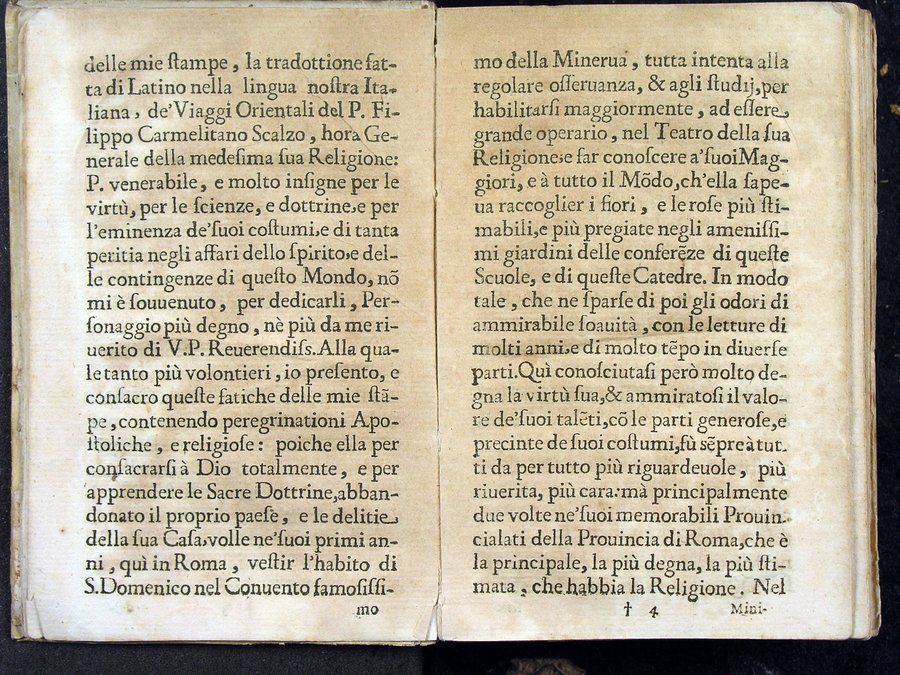 delle mie ſtampe, la tradottione fat-
ta di Latino nella lingua noſtra Ita-
liana, de'Viaggi Orientali del P. Fi-
lippo Carmelitano Scalzo, hora Ge-
nerale della medeſima ſua Religione:
P. venerabile, e molto inſigne per le
virtù, per le ſcienze, e dottrine, e per
l'eminenza de'ſuoi coſtumi, e di tanta
peritia negli affari dello ſpirito, e del-
le contingenze di queſto Mondo, nõ
mi è ſouuenuto, per dedicarli, Per-
ſonaggio più degno, nè più da me ri-
uerito di V.P. Reuerendiſs. Alla qua-
le tanto più volontieri, io preſento, e
conſacro queſte fatiche delle mie ſtã-
pe, contenendo peregrinationi Apo-
ſtoliche, e religioſe: poiche ella per
conſacrarſi à Dio totalmente, e per
apprendere le Sacre Dottrine, abban-
donato il proprio paeſe, e le delitie
della ſua Caſa, volle ne'ſuoi primi an-
ni, quì in Roma, veſtir l'habito di
S. Domenico nel Conuento famoſiſſi-
mo
mo della Minerua, tutta intenta alla
regolare oſſeruanza, & agli ſtudij, per
habilitarſi maggiormente, ad eſſere
grande operario, nel Teatro della ſua
Religione: e far conoſcere a'ſuoi Mag-
giori, e à tutto il Mõdo, ch'ella ſape-
ua raccoglier i fiori, e le roſe più ſti-
mabili, e più pregiate negli ameniſſi-
mi giardini delle conferẽze di queſte
Scuole, e di queſte Catedre. In modo
tale, che ne ſparſe di poi gli odori di
ammirabile ſoauità, con le letture di
molti anni, e di molto tẽpo in diuerſe
parti. Quì conoſciutaſi però molto de-
gna la virtù ſua, & ammiratoſi il valo-
re de'ſuoi talẽti, cõ le parti generoſe, e
precinte de ſuoi coſtumi, fù sẽpre à tut-
ti da per tutto più riguardeuole, più
riuerita, più cara: mà principalmente
due volte ne'ſuoi memorabili Prouin-
cialati della Prouincia di Roma, che è
la principale, la più degna, la più ſti-
mata, che habbia la Religione. Nel
† 4 Mini-